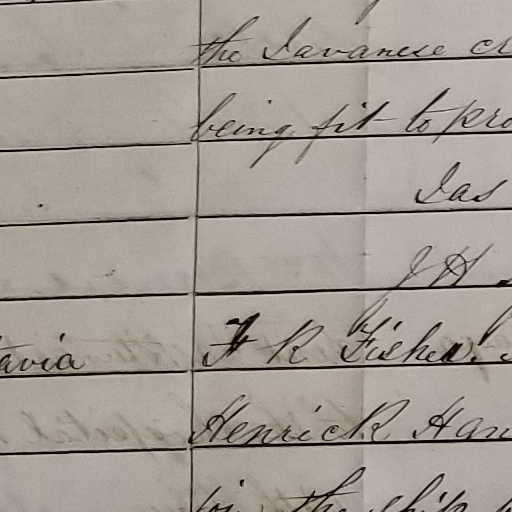 the Javanese cr
being fit to pro
Jas
J H
avia F R Fisher.
Henrick Han
the ship